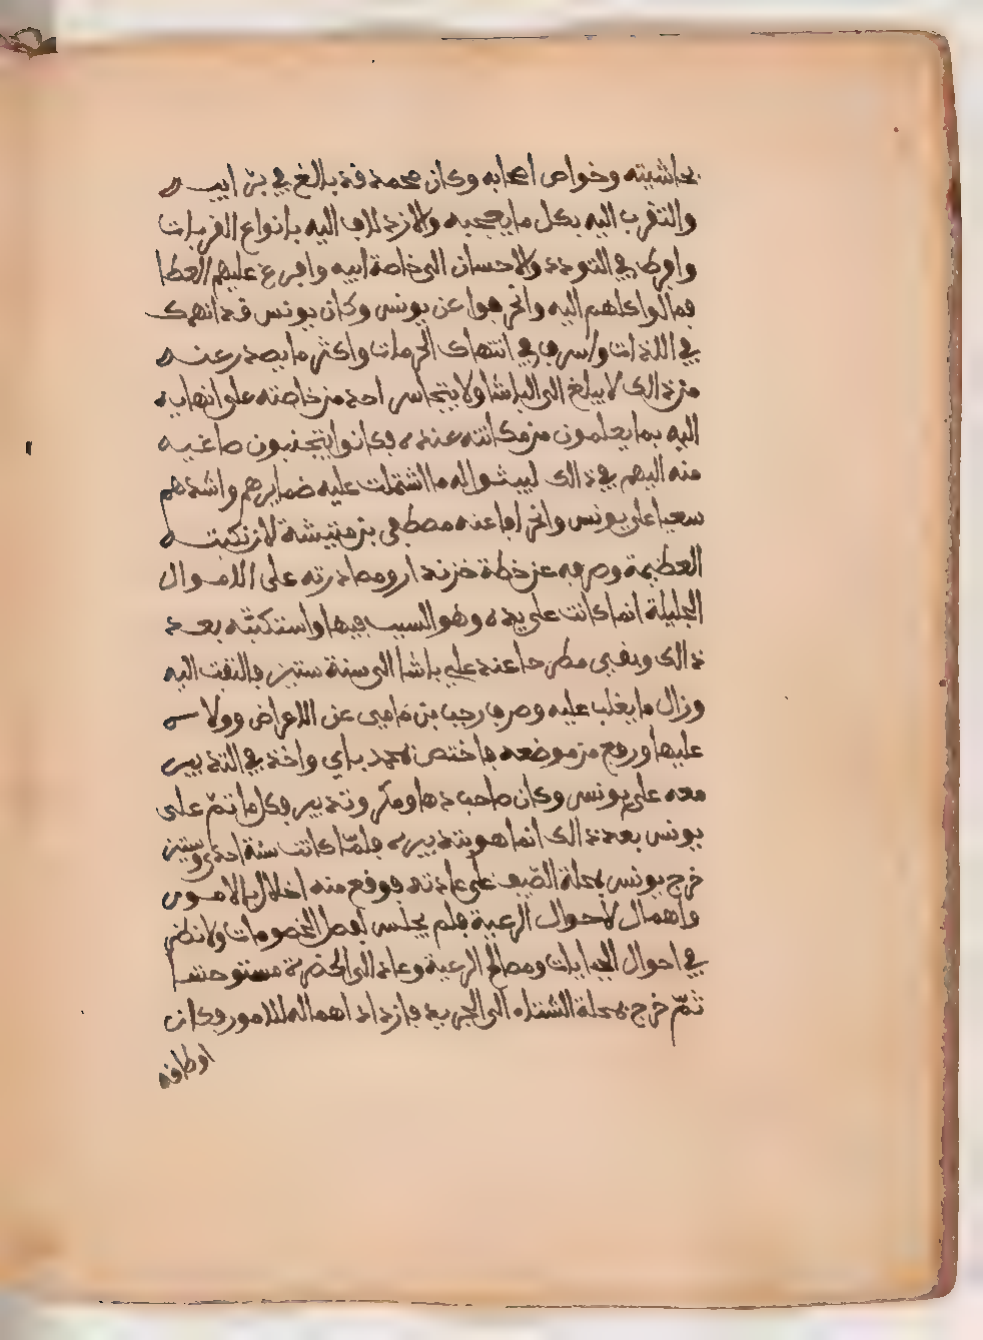 بحاشيته وخواص اصحابه وكان محمد قد بالغ في بر ابيه
والتقرب اليه بكل ما يعجبه والازدلاف اليه بانواع القربات
وافرط في التودد والاحسان الى خاصة ابيه وافرغ عليهم العطا
فمالوا كلهم اليه وانحرفوا عن يونس وكان يونس قد انهمك
في اللذات واسرف في انتهاك الحرمات واكثر ما يصدر عنه
من ذالك لا يبلغ الى الباشا ولا يتجاسر احد من خاصته على انهايه
اليه بما يعلمون من مكانته عنده فكانوا يتجذبون صاغية
منه اليهم في ذالك ليبثوا له ما اشتملت عليه ضمايرهم واشدهم
سعيا على يونس وانحرافا عنه مصطفى بن متيشة لان نكبته
العظيمة وصرفه عن خطة خزندار ومصادرته على الاموال
الجليلة انما كانت على يده وهو السبب فيها واستكتبه بعد
ذالك وبقي مطرحا عند علي باشا الى سنة ستين فالتفت اليه
وزال ما يغلب عليه وصرف رجب بن مامي عن الاعراض وولاه
عليها ورفع من موضعه فاختص بمحمد باي واخذ في التدبير
معه على يونس وكان صاحب دها ومكر وتدبير فكل ما تم على
يونس بعد ذالك انما هو بتدبيره فلمّا كانت سنة احدى وستين
خرج يونس بمحلة الصيف على عادته فوقع منه اخلال بالامور
واهمال لاحوال الرعية فلم يجلس لفصل الخصومات ولا نظر
في احوال الجبايات ومصالح الرعية وعاد الى الحضرة مستوحشا
ثمّ خرج بمحلة الشتاء الى الجريد فازداد اهماله للامور وكان
اوطاقه